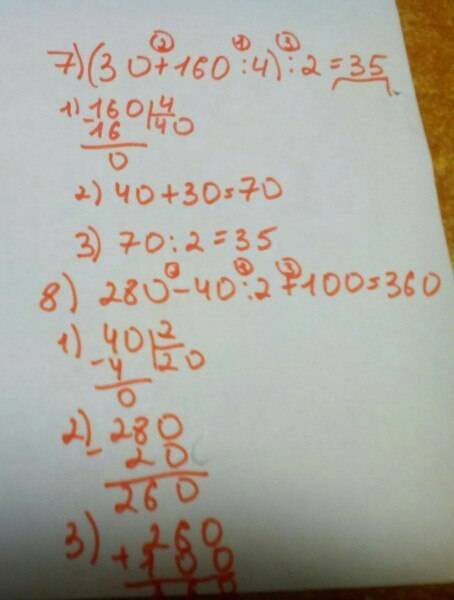 ② ① ③
7) (30+160:4):2=35
1) 160 | 4
-16 | 40
0
2) 40+30=70
3) 70:2=35
② ① ③
8) 280-40:2+100=360
1) 40 | 2
-4 | 20
0
2) 280
- 20
260
3) 260
+ 100